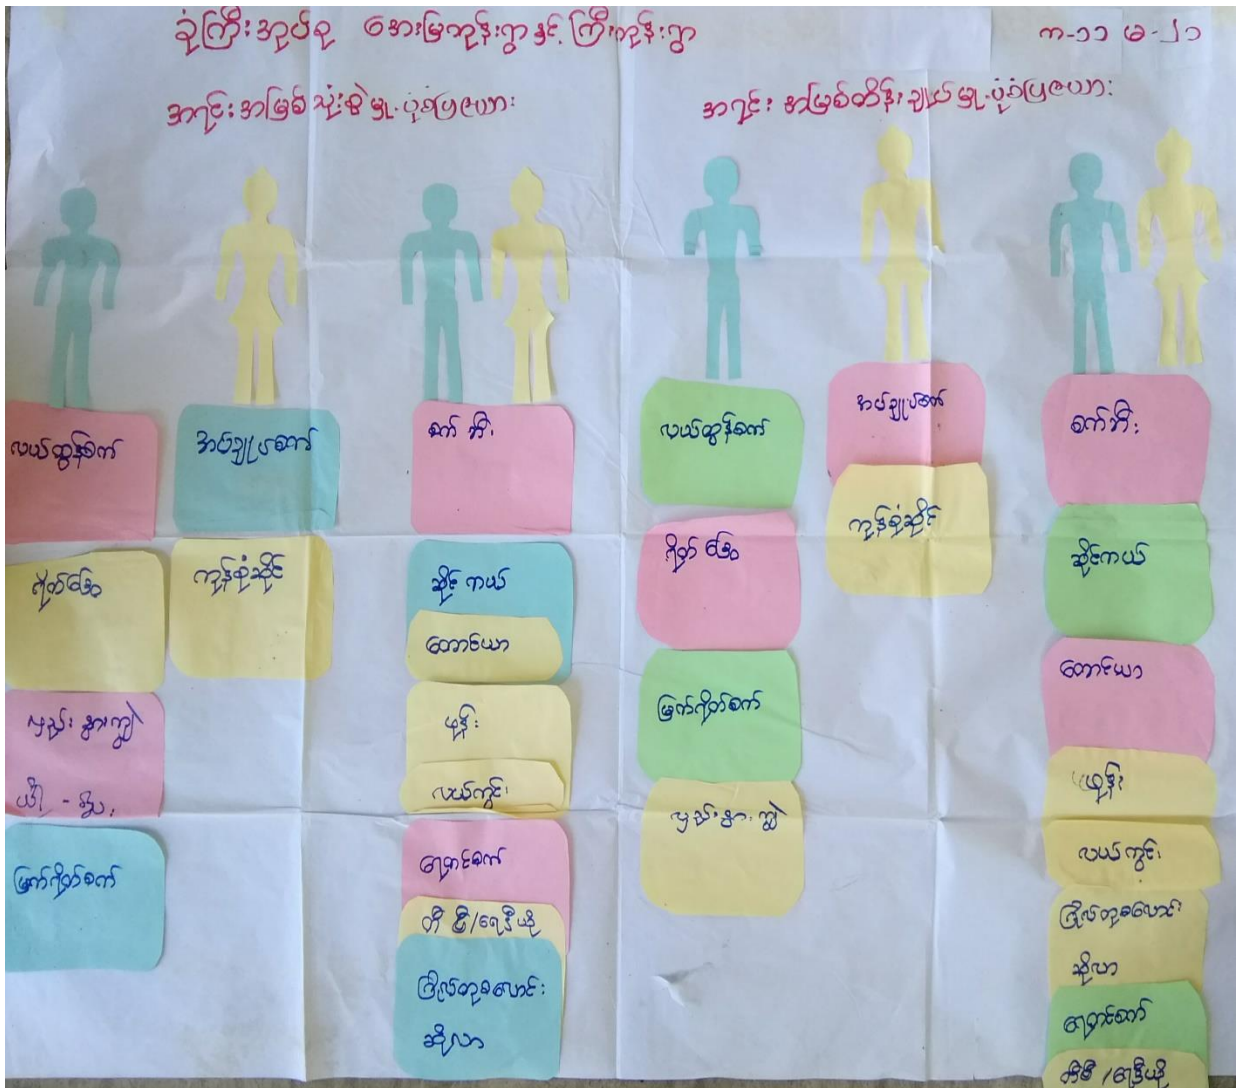 ခုံကြီးအုပ်စု အေးမြကုန်းရွာနှင့် ကြီးကုန်းရွာ
က-၁၁ မ-၂၁
အရင်းအမြစ်သုံးစွဲမှု ပုံစံပြဇယား
အရင်းအမြစ်ထိန်းချုပ်မှု ပုံစံပြဇယား
လယ်ထွန်စက်
ရိတ်ခြွေ
မှည်းနွားကျွဲ
မြက်ရိတ်စက်
အပ်ချုပ်စက်
ကုန်စုံဆိုင်
စက်ဘီး
ဆိုင်ကယ်
တောင်ယာ
ဖုန်း
လယ်ကွင်း
ရေတင်စက်
တီဗွီ/ရေဒီယို
ဂြိုလ်တုစလောင်း
ဆိုလာ
လယ်ထွန်စက်
ရိတ်ခြွေ
မြက်ရိတ်စက်
မှည်းနွားကျွဲ
အပ်ချုပ်စက်
ကုန်စုံဆိုင်
စက်ဘီး
ဆိုင်ကယ်
တောင်ယာ
ဖုန်း
လယ်ကွင်း
ဂြိုလ်တုစလောင်း
ဆိုလာ
ရေတင်စက်
တီဗီ/ရေဒီယို